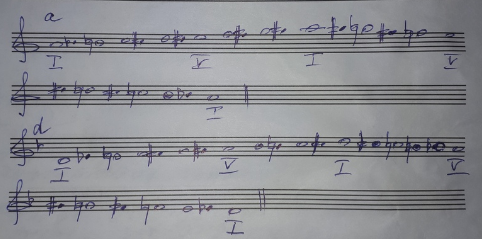 a
I V I V
I
d
I V I V
I